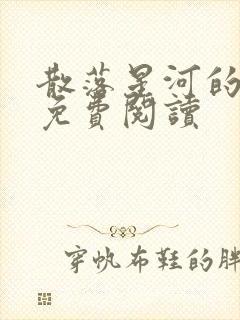 散落星河的
免費閱讀
穿帆布鞋的胖